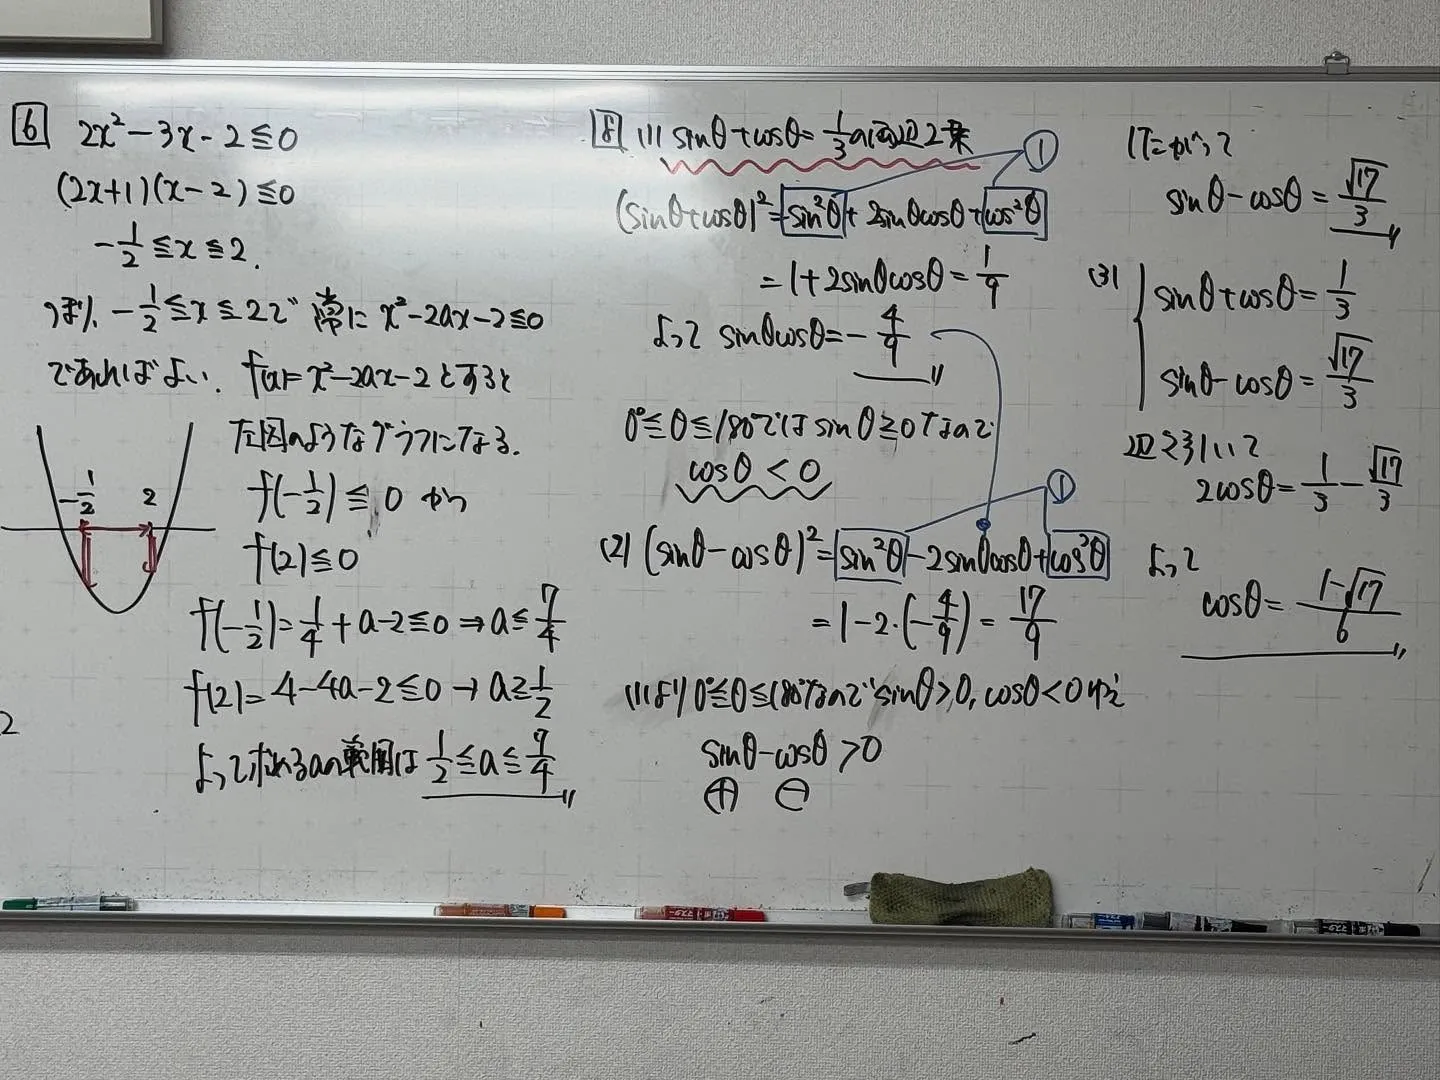 6 2x²-3x-2≦0
(2x+1)(x-2)≦0
-1/2≦x≦2.
つまり、-1/2≦x≦2で常にx²-2ax-2≦0
であればよい. f(x)=x²-2ax-2とすると
左図のようなグラフになる.
-1/2 2
f(-1/2)≦0 かつ
f(2)≦0
f(-1/2)=1/4+a-2≦0⇒a≦7/4
f(2)=4-4a-2≦0→a≧1/2
よって求めるaの範囲は 1/2≦a≦7/4
2
8 (1) sinθ+cosθ=1/3の両辺2乗
①
(sinθ+cosθ)²=sin²θ+2sinθcosθ+cos²θ
=1+2sinθcosθ=1/9
よって sinθcosθ=-4/9
0°≦θ≦180°ではsinθ≧0なので
cosθ<0
①
(2) (sinθ-cosθ)²=sin²θ-2sinθcosθ+cos²θ
=1-2・(-4/9)=17/9
(1)より0°≦θ≦180°なのでsinθ>0, cosθ<0ゆえ
sinθ-cosθ>0
⊕ ⊖
したがって
sinθ-cosθ=√17/3
(3) sinθ+cosθ=1/3
sinθ-cosθ=√17/3
辺々引いて
2cosθ=1/3-√17/3
よって
cosθ=1-√17/6